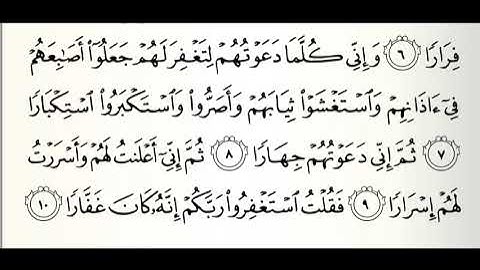 فِرَارًا ٦ وَإِنِّي كُلَّمَا دَعَوْتُهُمْ لِتَغْفِرَ لَهُمْ جَعَلُوٓا۟ أَصَٰبِعَهُمْ
فِىٓ ءَاذَانِهِمْ وَٱسْتَغْشَوْا۟ ثِيَابَهُمْ وَأَصَرُّوا۟ وَٱسْتَكْبَرُوا۟ ٱسْتِكْبَارًا
٧ ثُمَّ إِنِّى دَعَوْتُهُمْ جِهَارًا ٨ ثُمَّ إِنِّىٓ أَعْلَنتُ لَهُمْ وَأَسْرَرْتُ
لَهُمْ إِسْرَارًا ٩ فَقُلْتُ ٱسْتَغْفِرُوا۟ رَبَّكُمْ إِنَّهُۥ كَانَ غَفَّارًا ١٠